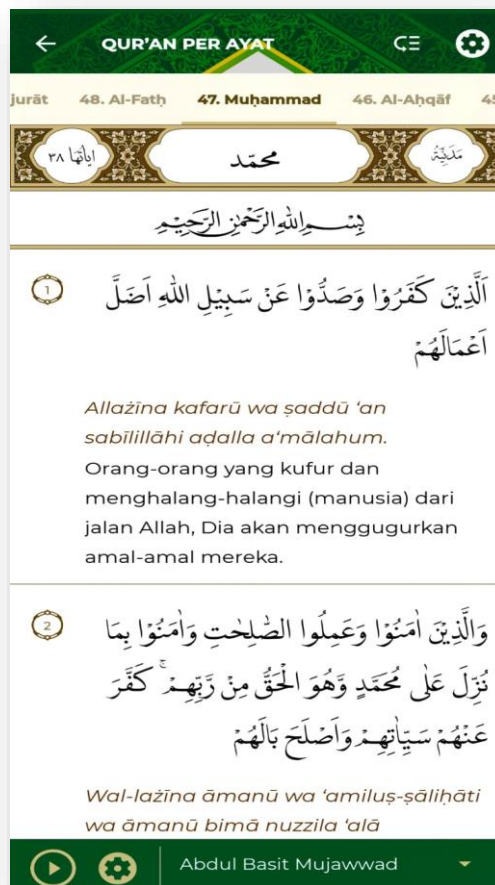 QUR'AN PER AYAT
jurāt 48. Al-Fatḥ 47. Muḥammad 46. Al-Aḥqāf 45
اٰياتها ٣٨ محمّد مَدَنِيَّةٌ
بِسْمِ اللّٰهِ الرَّحْمٰنِ الرَّحِيْمِ
1
اَلَّذِيْنَ كَفَرُوْا وَصَدُّوْا عَنْ سَبِيْلِ اللّٰهِ اَضَلَّ
اَعْمَالَهُمْ
Allażīna kafarū wa ṣaddū ‘an
sabīlillāhi aḍalla a‘mālahum.
Orang-orang yang kufur dan
menghalang-halangi (manusia) dari
jalan Allah, Dia akan menggugurkan
amal-amal mereka.
2
وَالَّذِيْنَ اٰمَنُوْا وَعَمِلُوا الصّٰلِحٰتِ وَاٰمَنُوْا بِمَا
نُزِّلَ عَلٰى مُحَمَّدٍ وَّهُوَ الْحَقُّ مِنْ رَّبِّهِمْ ۚ كَفَّرَ
عَنْهُمْ سَيِّاٰتِهِمْ وَاَصْلَحَ بَالَهُمْ
Wal-lażīna āmanū wa ‘amiluṣ-ṣāliḥāti
wa āmanū bimā nuzzila ‘alā
Abdul Basit Mujawwad